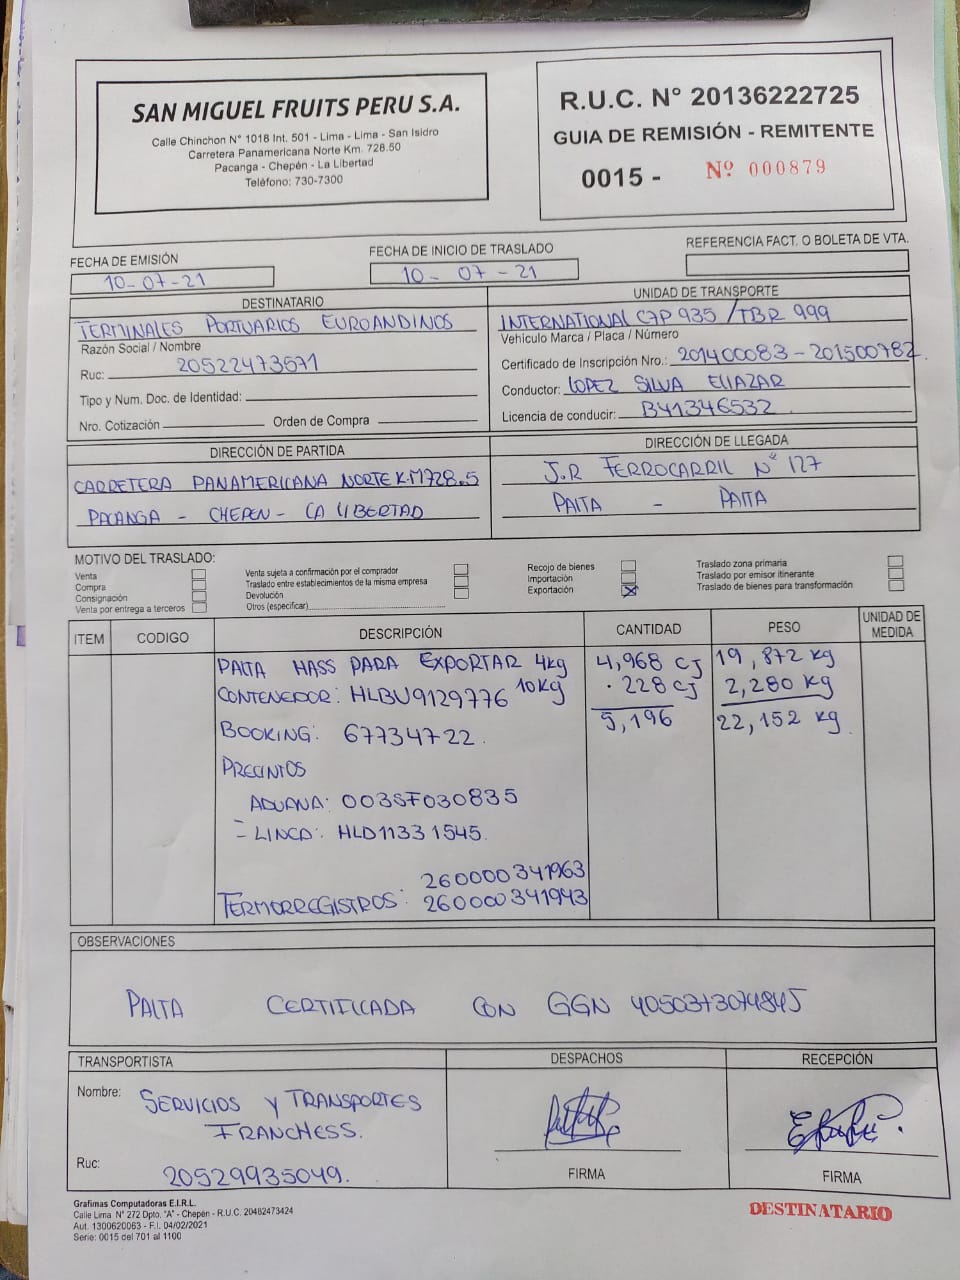 SAN MIGUEL FRUITS PERU S.A.
Calle Chinchon N° 1018 Int. 501 - Lima - Lima - San Isidro
Carretera Panamericana Norte Km. 728.50
Pacanga - Chepén - La Libertad
Teléfono: 730-7300
R.U.C. N° 20136222725
GUIA DE REMISIÓN - REMITENTE
0015 - Nº 000879
FECHA DE EMISIÓN
10-07-21
FECHA DE INICIO DE TRASLADO
10-07-21
REFERENCIA FACT. O BOLETA DE VTA.
DESTINATARIO
TERMINALES PORTUARIOS EUROANDINOS
Razón Social / Nombre
Ruc: 20522473571
Tipo y Num. Doc. de Identidad:
Nro. Cotización Orden de Compra
UNIDAD DE TRANSPORTE
INTERNATIONAL C7P 935 / TBR 999
Vehículo Marca / Placa / Número
Certificado de Inscripción Nro.: 201400083 - 201500782
Conductor: LOPEZ SILVA ELIAZAR
Licencia de conducir: B41346532
DIRECCIÓN DE PARTIDA
CARRETERA PANAMERICANA NORTE K.M 728.5
PACANGA - CHEPEN - LA LIBERTAD
DIRECCIÓN DE LLEGADA
J.R FERROCARRIL N° 127
PAITA - PAITA
MOTIVO DEL TRASLADO:
Venta
Compra
Consignación
Venta por entrega a terceros
Venta sujeta a confirmación por el comprador
Traslado entre establecimientos de la misma empresa
Devolución
Otros (especificar)
Recojo de bienes
Importación
Exportación
Traslado zona primaria
Traslado por emisor itinerante
Traslado de bienes para transformación
ITEM CODIGO DESCRIPCIÓN CANTIDAD PESO UNIDAD DE MEDIDA
PALTA HASS PARA EXPORTAR 4kg 4,968 CJ 19,872 kg
CONTENEDOR: HLBU9129776 10kg 228 CJ 2,280 kg
5,196 22,152 kg
BOOKING: 67734722.
PRECINTOS
ADUANA: 003SF030835
- LINEA: HLD11331545.
260000341963
TERMORREGISTROS: 260000341943
OBSERVACIONES
PALTA CERTIFICADA CON GGN 4050373074845
TRANSPORTISTA
Nombre: SERVICIOS Y TRANSPORTES
FRANCHESS.
Ruc: 20529935049.
DESPACHOS
FIRMA
RECEPCIÓN
FIRMA
Grafimas Computadoras E.I.R.L.
Calle Lima N° 272 Dpto. "A" - Chepén - R.U.C. 20482473424
Aut. 1300620063 - F.I. 04/02/2021
Serie: 0015 del 701 al 1100
DESTINATARIO